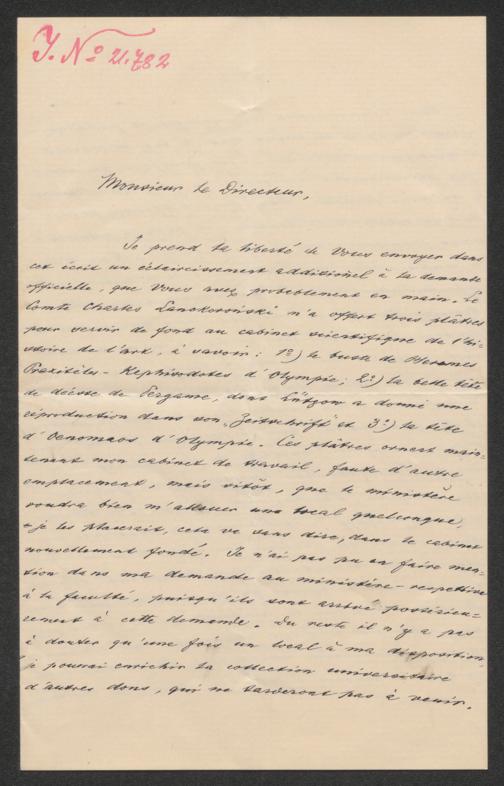 J. Nº 21.782
Monsieur le Directeur,
Je prend la liberté de Vous envoyer dans
cet écrit un éclaircissement additionel à la demande
officielle, que Vous avez probablement en main. Le
Comte Charles Lanckoroński m'a offert trois plâtres
pour servir de fond au cabinet scientifique de l'hi-
stoire de l'art, à savoir: 1º) le buste de Hermes
Praxitèles - Kephisodotos d'Olympie; 2º) la belle tête
de déesse de Pergame, dont Lützow a donné une
réproduction dans son "Zeitschrift" et 3º) la tête
d'Oenomaos d'Olympie. Ces plâtres ornent main-
tenant mon cabinet de travail, faute d'autre
emplacement, mais sitôt, que le ministère
voudra bien m'allouer un local quelconque,
je les placerait, cela va sans dire, dans le cabinet
nouvellement fondé. Je n'ai pas pu en faire men-
tion dans ma demande au ministère - respective
à la faculté, puisqu'ils sont arrivé postérieu-
rement à cette demande. Du reste il n'y a pas
à douter qu'une fois un local à ma disposition,
je pourrai enrichir la collection universitaire
d'autres dons, qui ne tarderont pas à venir.